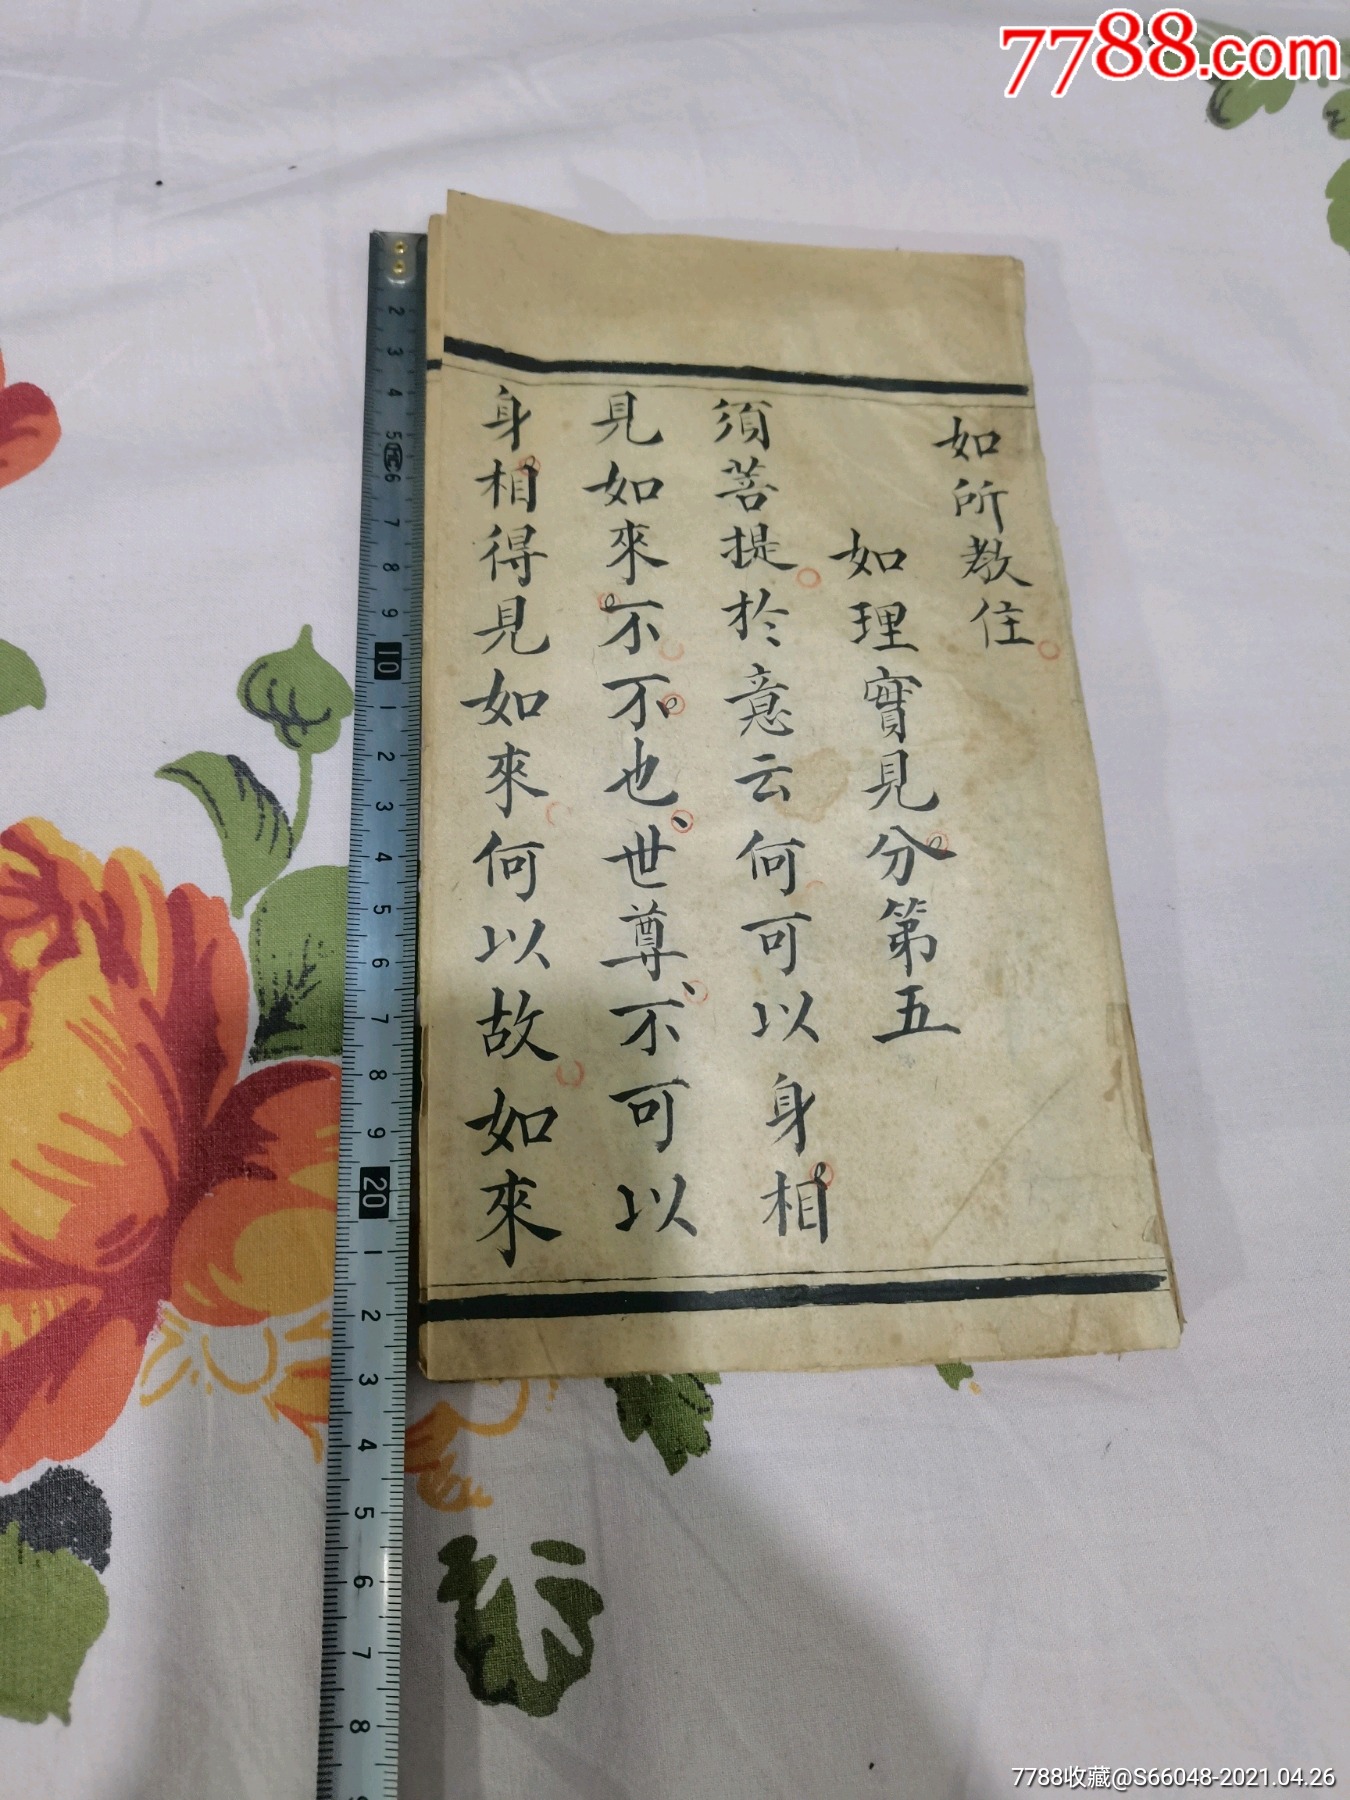 7788.com
如所教住
如理實見分第五
須菩提於意云何可以身相
見如來不不也世尊不可以
身相得見如來何以故如來
2
3
4
5
6
7
8
9
10
1
2
3
4
5
6
7
8
9
20
1
2
3
4
5
6
7
8
7788收藏@S66048-2021.04.26